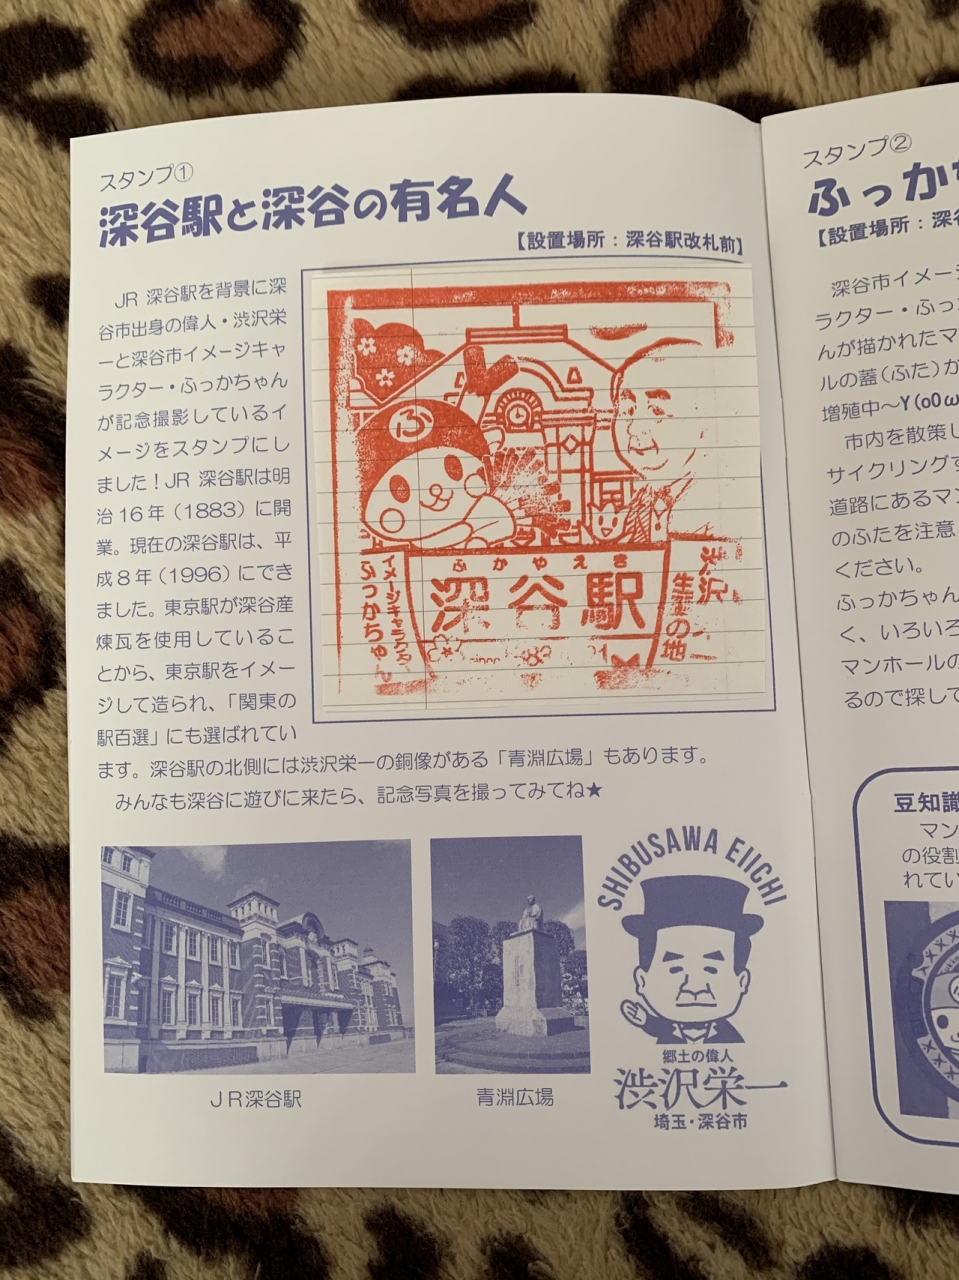 スタンプ①
深谷駅と深谷の有名人
【設置場所：深谷駅改札前】
JR 深谷駅を背景に深
谷市出身の偉人・渋沢栄
一と深谷市イメージキャ
ラクター・ふっかちゃん
が記念撮影しているイ
メージをスタンプにし
ました！JR 深谷駅は明
治16年（1883）に開
業。現在の深谷駅は、平
成8年（1996）にでき
ました。東京駅が深谷産
煉瓦を使用しているこ
とから、東京駅をイメー
ジして造られ、「関東の
駅百選」にも選ばれてい
ます。深谷駅の北側には渋沢栄一の銅像がある「青淵広場」もあります。
みんなも深谷に遊びに来たら、記念写真を撮ってみてね★
ふ
ふかやえき
深谷駅
イメージキャラクター
ふっかちゃん
渋沢
生誕の地
JR深谷駅
青淵広場
SHIBUSAWA EIICHI
郷土の偉人
渋沢栄一
埼玉・深谷市
スタンプ②
ふっか
【設置場所：深
深谷市イメー
ラクター・ふっ
んが描かれたマ
ルの蓋（ふた）が
増殖中～Y(o0ω
市内を散策し
サイクリングす
道路にあるマン
のふたを注意
ください。
ふっかちゃん
く、いろいろ
マンホールの
るので探して
豆知識
マン
の役割
れてい